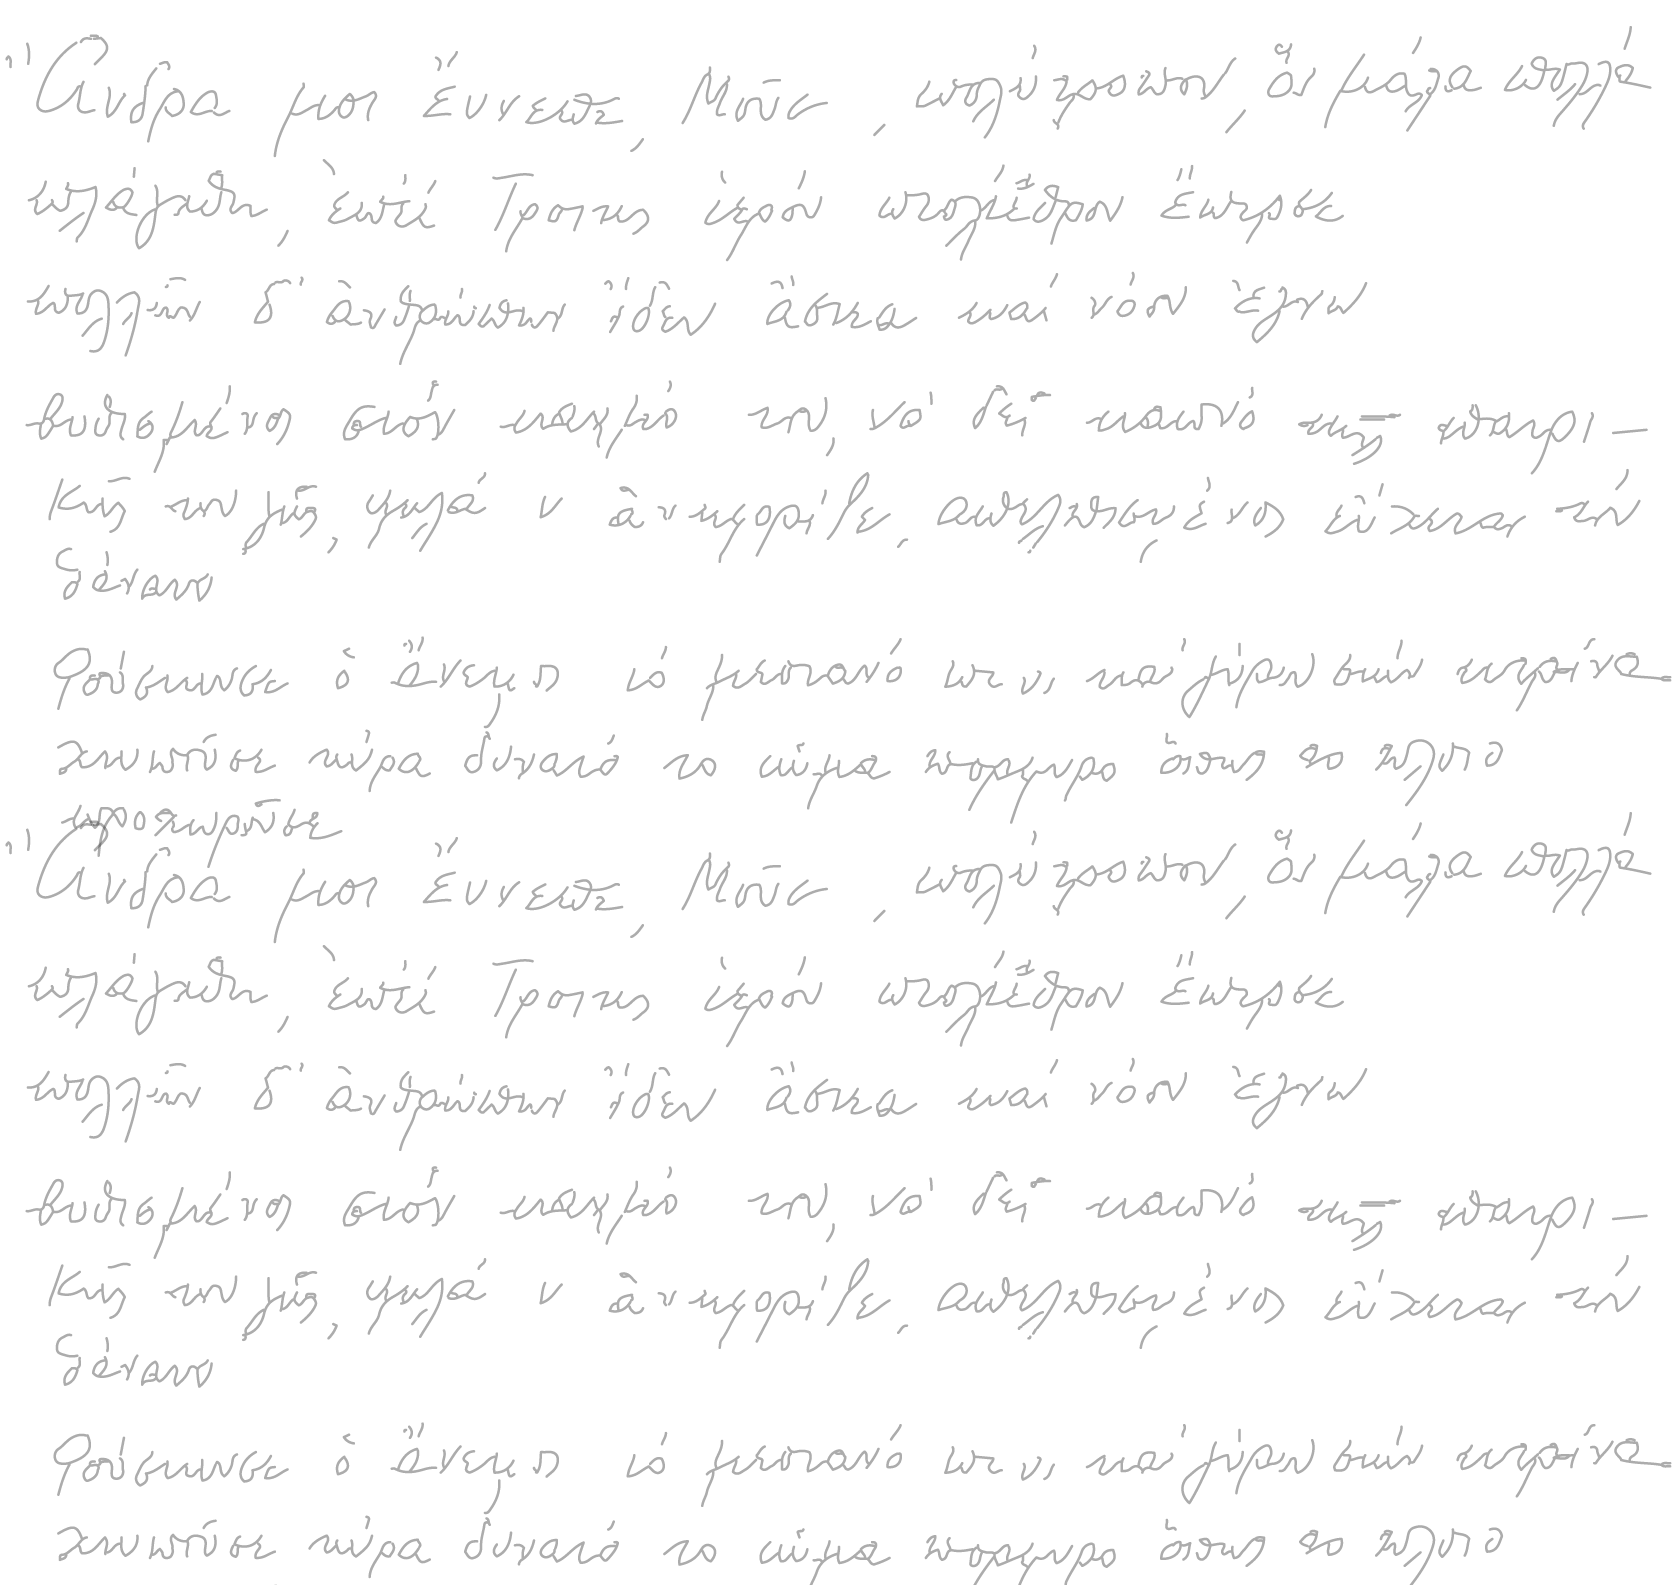 Ἄνδρα μοι ἔννεπε, Μοῦσ , πολύτροπον, ὃς μάλα πολλὰ
πλάγχθη, ἐπεὶ Τροίης ἱερόν πτολίεθρον ἔπερσε
πολλῶν δ' ἀνθρώπων ἴδεν ἄστεα καί νόον ἔγνω
βυθισμένος στόν καημό του, νά δεῖ καπνό τῆς πατρι-
κῆς του γῆς, ψηλά ν ἀνηφορίζε, ἀπελπισμένος εὔχεται τόν
θάνατο
Φούσκωσε ὁ ἄνεμος τό μεσιανό πανί, καί γύρω στήν καρίνα
χτυποῦσε τώρα δυνατά το κύμα πορφυρο ὅπως το πλοῖο
προχωροῦσε
Ἄνδρα μοι ἔννεπε, Μοῦσ , πολύτροπον, ὃς μάλα πολλὰ
πλάγχθη, ἐπεὶ Τροίης ἱερόν πτολίεθρον ἔπερσε
πολλῶν δ' ἀνθρώπων ἴδεν ἄστεα καί νόον ἔγνω
βυθισμένος στόν καημό του, νά δεῖ καπνό τῆς πατρι-
κῆς του γῆς, ψηλά ν ἀνηφορίζε, ἀπελπισμένος εὔχεται τόν
θάνατο
Φούσκωσε ὁ ἄνεμος τό μεσιανό πανί, καί γύρω στήν καρίνα
χτυποῦσε τώρα δυνατά το κύμα πορφυρο ὅπως το πλοῖο